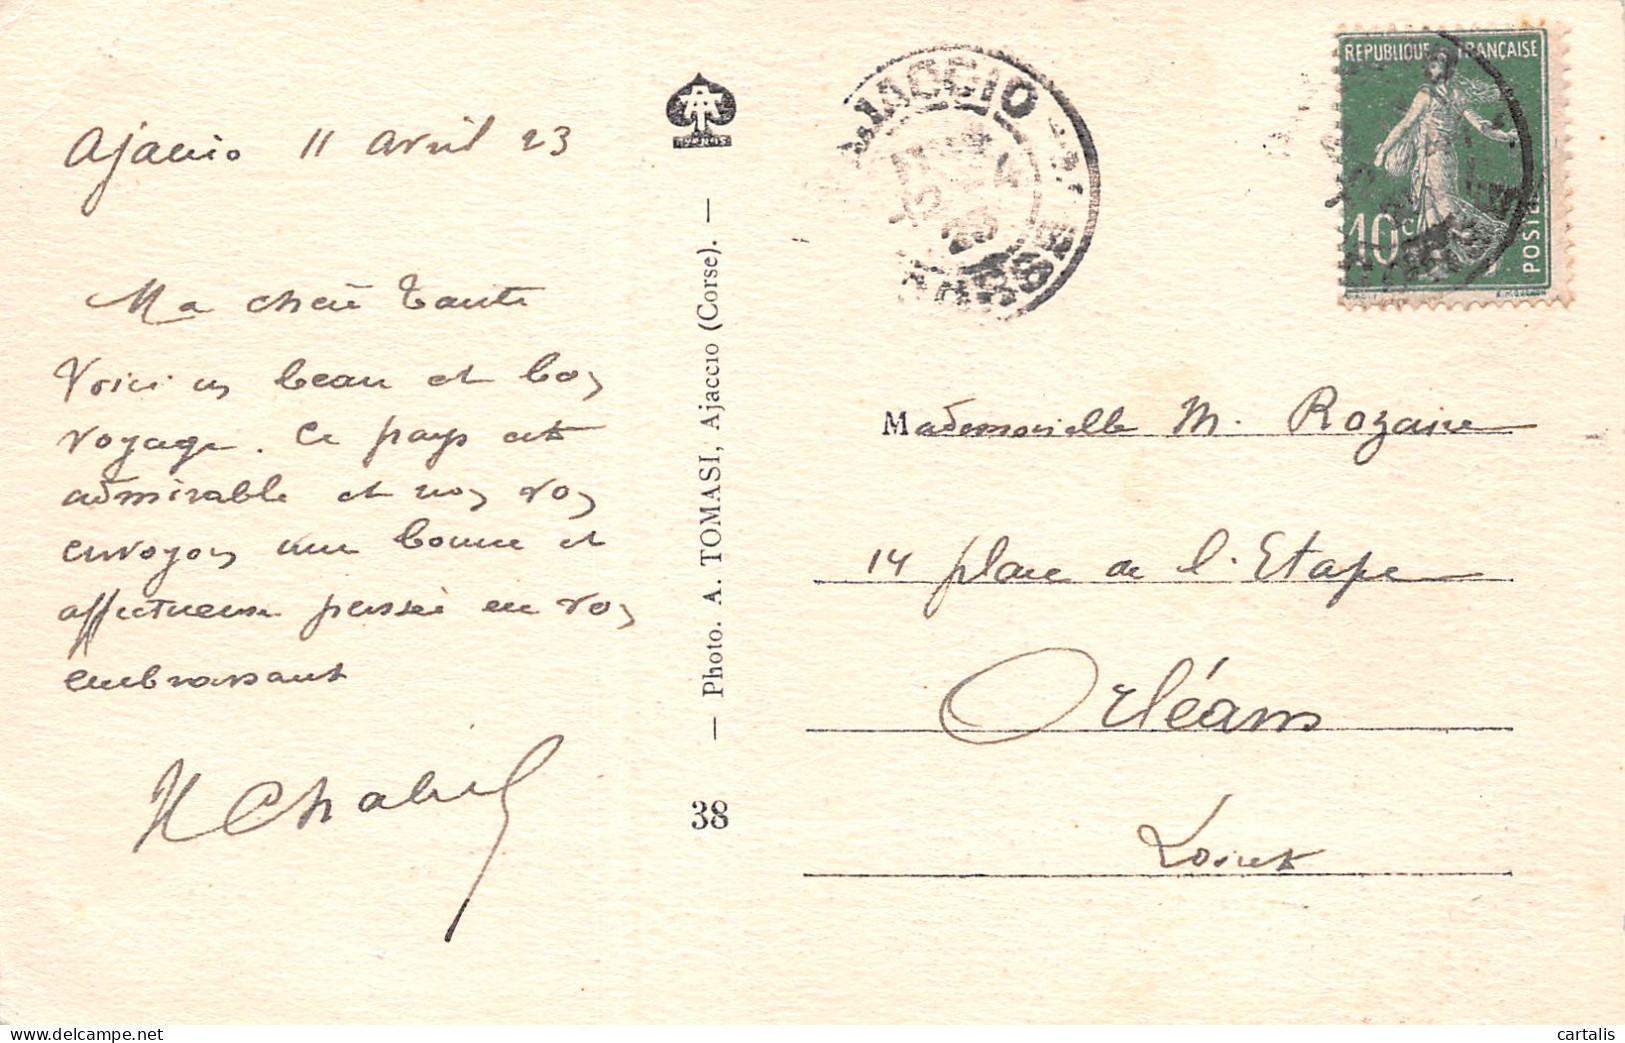 Ajaccio 11 avril 23
Ma chère Tante
Voici un beau et bon
voyage. Ce pays est
admirable et nous vous
envoyons une bonne et
affectueuse pensée en vous
embrassant
— Photo. A. TOMASI, Ajaccio (Corse). —
38
AJACCIO
REPUBLIQUE FRANÇAISE
10c
POSTES
Mademoiselle M. Rozaire
14 place de l'Etape
Orléans
Loiret
cartalis